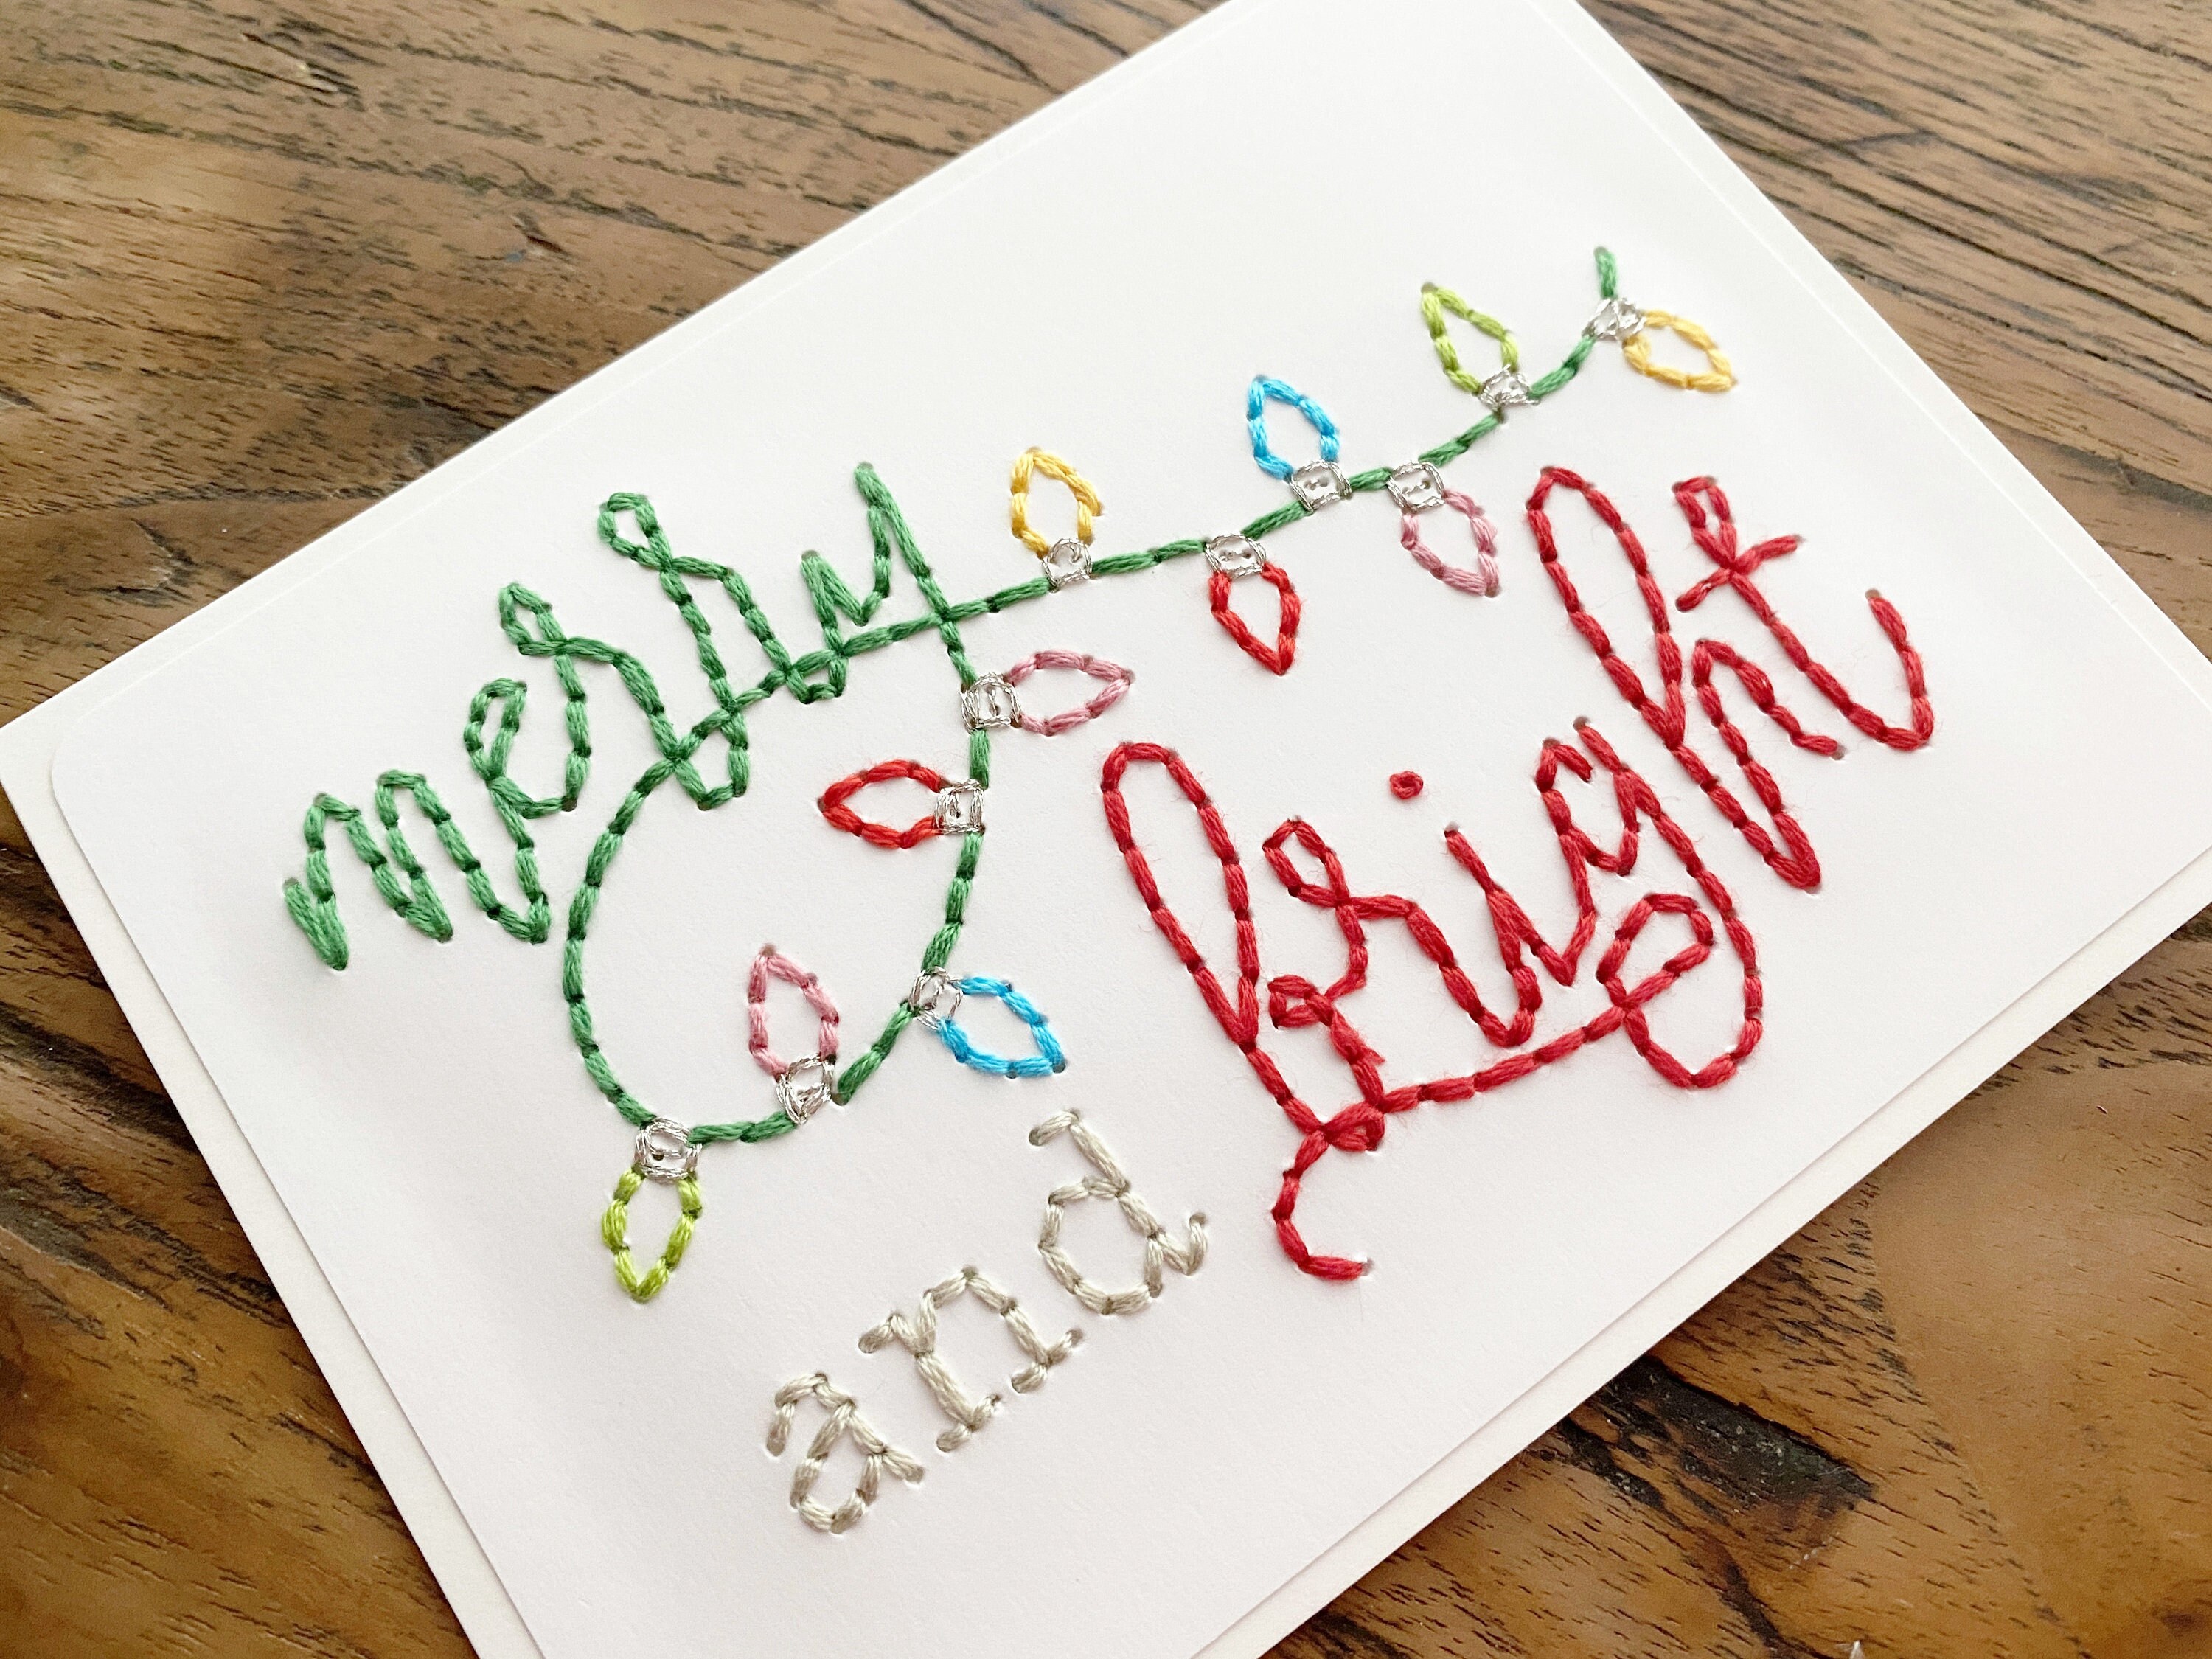 merry
and
bright